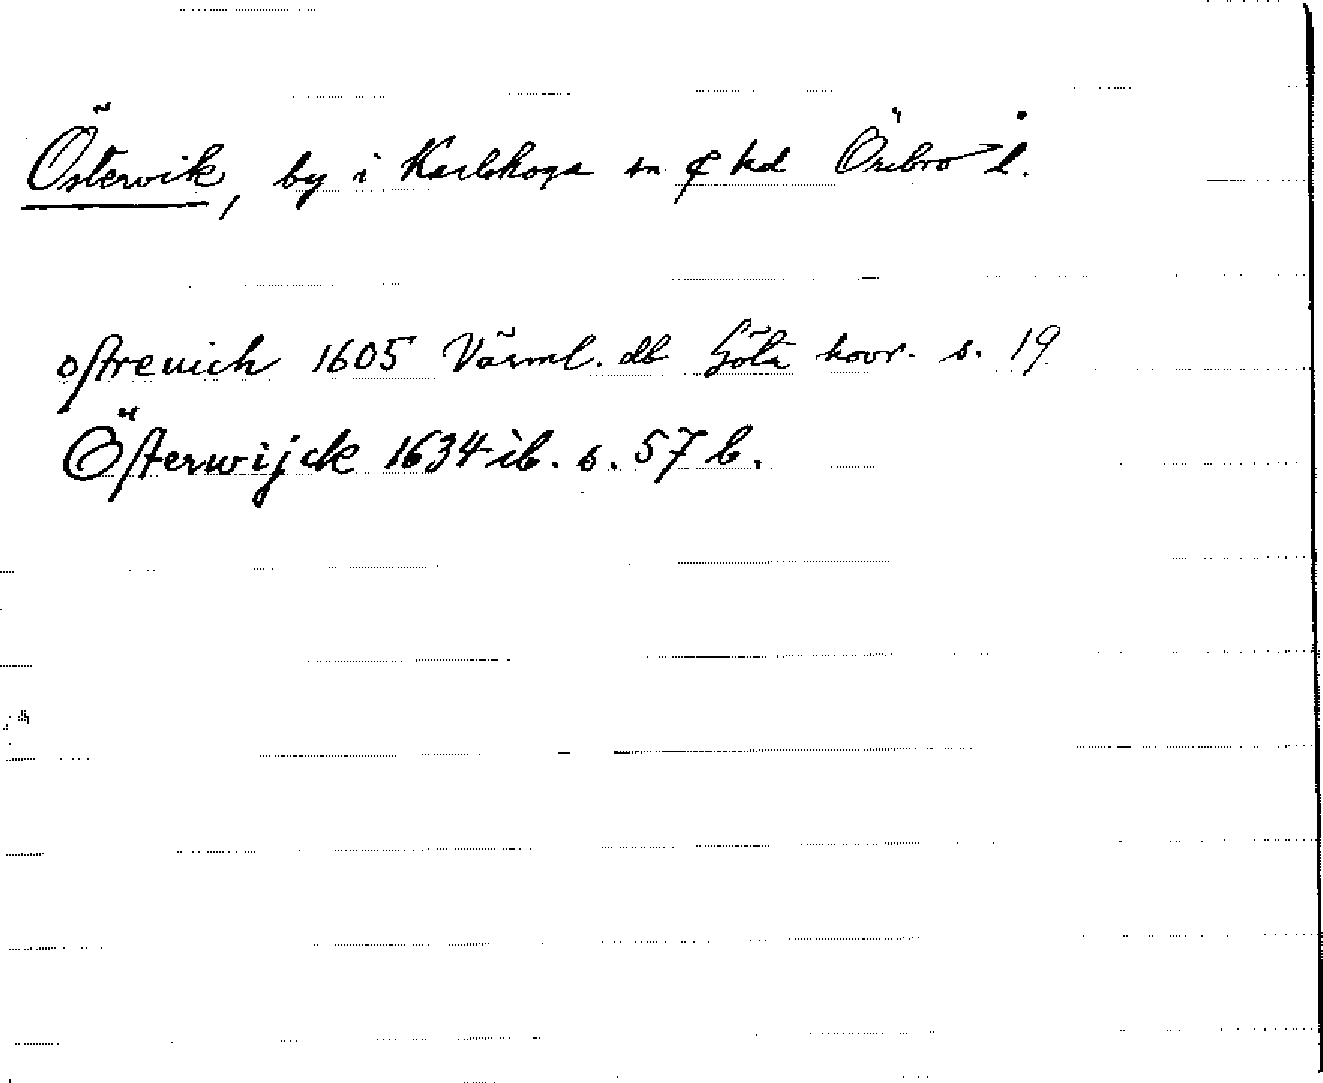 Östervik, by i Karlskoga sn o hd Örebro l.
oſtreuich 1605 Värml. db Göta hovr. s. 19
Öſterwijck 1634 ib. s. 57 b.